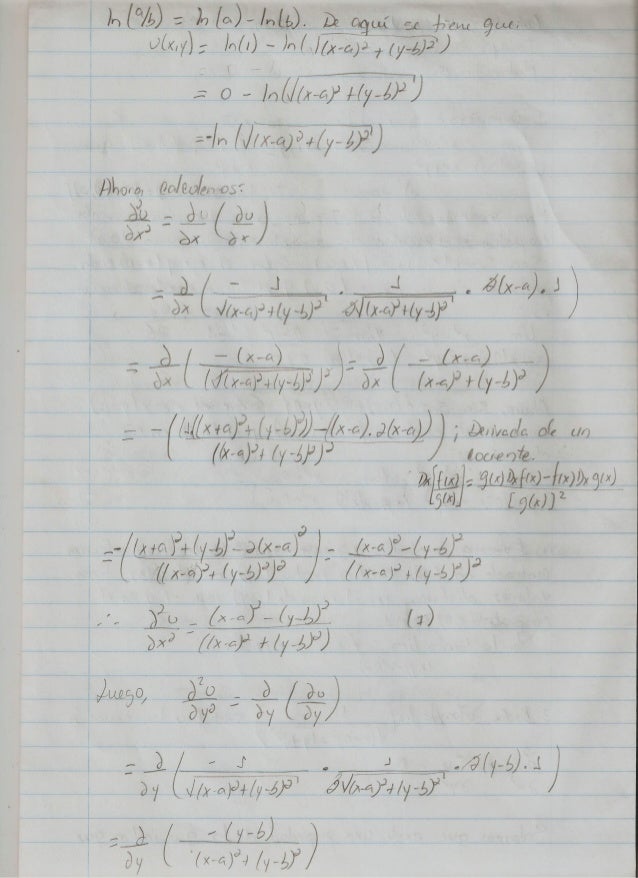 ln(a/b) = ln(a) - ln(b). De aquí se tiene que:
U(x,y) = ln(1) - ln(√((x-a)² + (y-b)²))
= 0 - ln(√((x-a)² + (y-b)²))
= -ln(√((x-a)² + (y-b)²))
Ahora calculemos:
∂²U/∂x² = ∂U/∂x (∂U/∂x)
= ∂/∂x ( - 1/√((x-a)²+(y-b)²) · 1/(2√((x-a)²+(y-b)²)) · 2(x-a) · 1 )
= ∂/∂x ( -(x-a)/(√((x-a)²+(y-b)²))² ) = ∂/∂x ( -(x-a)/((x-a)²+(y-b)²) )
= - ( (1((x+a)²+(y-b)²)) - ((x-a).2(x-a)) / ((x-a)²+(y-b)²)² ) ; Derivada de un
cociente.
Dx[f(x)/g(x)] = g(x)Dxf(x) - f(x)Dxg(x) / [g(x)]²
= - ( (x+a)²+(y-b)²-2(x-a)² / ((x-a)²+(y-b)²)² ) = (x-a)²-(y-b)² / ((x-a)²+(y-b)²)²
∴ ∂²U/∂x² = (x-a)²-(y-b)² / ((x-a)²+(y-b)²) (1)
Luego, ∂²U/∂y² = ∂/∂y (∂U/∂y)
= ∂/∂y ( - 1/√((x-a)²+(y-b)²) · 1/(2√((x-a)²+(y-b)²)) · 2(y-b) · 1 )
= ∂/∂y ( -(y-b)/((x-a)²+(y-b)²) )